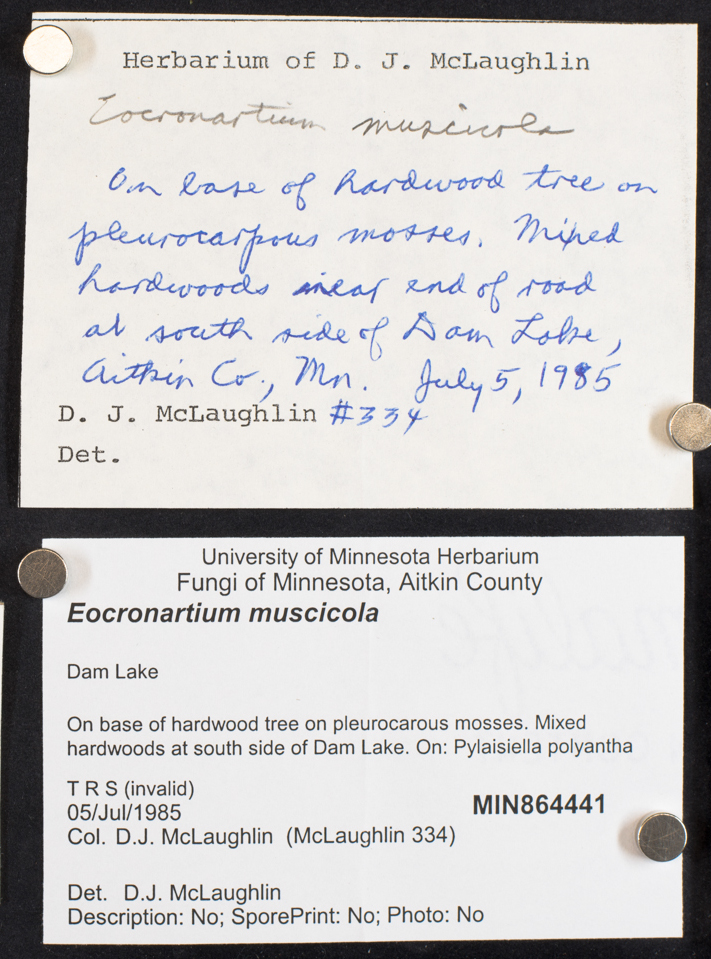 Herbarium of D. J. McLaughlin
Eocronartium muscicola
On base of hardwood tree on
pleurocarpous mosses. Mixed
hardwoods near end of road
at south side of Dam Lake,
Aitkin Co., Mn. July 5, 1985
D. J. McLaughlin #334
Det.
University of Minnesota Herbarium
Fungi of Minnesota, Aitkin County
Eocronartium muscicola
Dam Lake
On base of hardwood tree on pleurocarous mosses. Mixed
hardwoods at south side of Dam Lake. On: Pylaisiella polyantha
T R S (invalid)
05/Jul/1985
MIN864441
Col. D.J. McLaughlin (McLaughlin 334)
Det. D.J. McLaughlin
Description: No; SporePrint: No; Photo: No